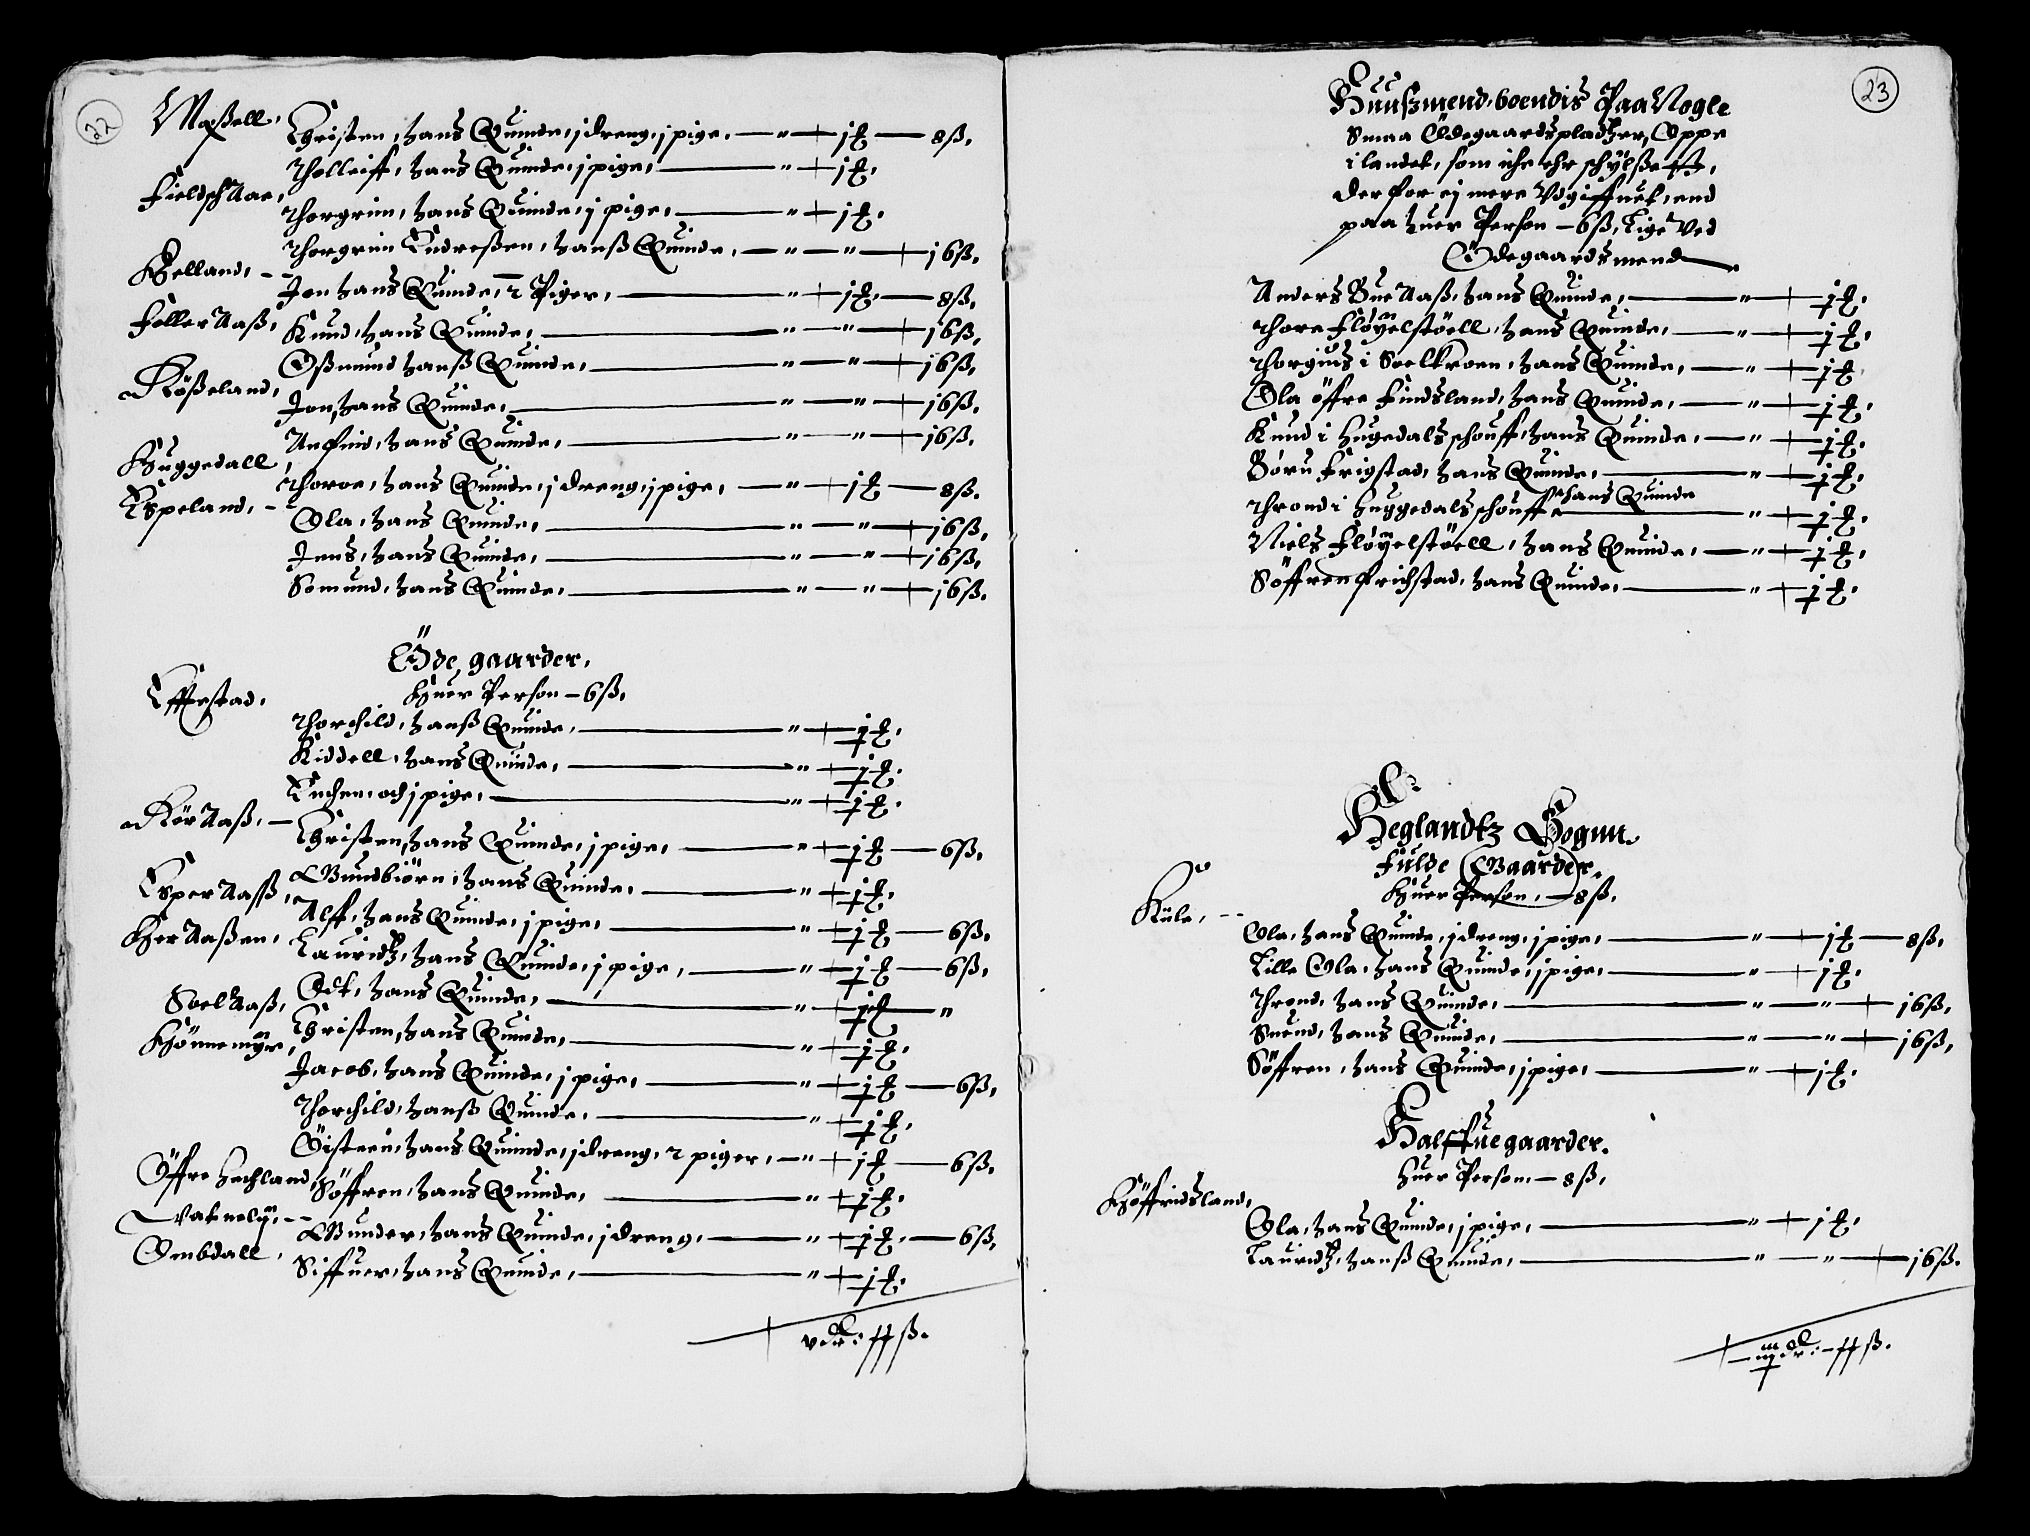 22
Maßell, Christen, hans Quinde, j dreng, j pige, — " — j ₰ — 8 ß.
Tholleiff, hans Quinde, j pige, — " — j ₰.
Fieldsch Aae, Thorgrim, hans Quinde, j pige, — " — j ₰.
Thorgrim Endreßen, hanß Quinde, — " — " — 16 ß.
Helland, Jon hans Quinde, 2 Piger, — " — j ₰ — 8 ß.
Feller Aaß, Knud, hans Quinde, — " — " — 16 ß.
Oßmund hanß Quinde, — " — " — 16 ß.
Rößeland, Jon, hans Quinde, — " — " — 16 ß.
Anfind, hans Quinde, — " — " — 16 ß.
Huggedall, Thoroe, hans Quinde, j dreng, j pige, — " — j ₰ — 8 ß.
Espeland, Ola, hans Quinde, — " — " — 16 ß.
Jens, hans Quinde, — " — " — 16 ß.
Somund, hans Quinde, — " — " — 16 ß.
Öde gaarder,
Huer Person – 6 ß,
Effestad, Thorchild, hanß Quinde, — " — j ₰.
Kiddell, hans Quinde, — " — j ₰.
Enchen, och j pige, — " — j ₰.
Rör Aaß, Christen, hans Quinde, j pige, — " — j ₰ — 6 ß,
Gundbiörn, hans Quinde, — " — j ₰.
Esper Aaß, Alff, hans Quinde, j pige, — " — j ₰ — 6 ß.
Her Aaßen, Lauridtz, hans Quinde, j pige, — " — j ₰ — 6 ß,
Odt, hans Quinde, — " — j ₰ — "
Soel Aaß, Christen, hans Quinde, — " — j ₰.
Hönnemÿr, Jacob, hans Quinde, j pige, — " — j ₰ — 6 ß,
Thorchild, hanß Quinde, — " — j ₰.
Öisten, hans Quinde, j dreng, 2 piger, — " — j ₰ — 6 ß,
Öffre Hechland, Söffren, hans Quinde, — " — j ₰.
Vatnelÿ, Gunder, hans Quinde, j dreng, — " — j ₰. — 6 ß,
Ombdall, Siffuer, hans Quinde, — " — j ₰.
v dr: ff ß.
23
Huußmend, boendis Paa Nogle
Smaa Ödegaardspladtzer, Oppe
i landet, som iche ehr schÿlßette,
derfor ej mere Udgiffuet, end
paa huer Person – 6 ß, Lige Ved
Ödegaardsmend
Anders Bue Aaß, hans Quinde, — " — j ₰.
Thore Fløÿelstöell, hans Quinde, — " — j ₰.
Thorgius i Soelkroen, hans Quinde, — " — j ₰
Ola öffre Findsland, hans Quinde, — " — j ₰.
Knud i Hugedals schouff, hans Quinde, — " — j ₰.
Böru Frigstad, hans Quinde, — " — j ₰.
Thrond i Huggedals schouff, hans Quinde — " — j ₰.
Niels Fløÿelstöell, hans Quinde, — " — j ₰.
Söffren frichstad, hans Quinde, — " — j ₰.
Heglandtz Sognn.
Fulde Gaarder,
Huer Person, – 8 ß.
Küle, Ola, hans Quinde, j dreng, j pige, — " — j ₰ — 8 ß,
Lille Ola, hans Quinde, j pige, — " — j ₰.
Thrond, hans Quinde, — " — " — 16 ß.
Suend, hans Quinde, — " — " — 16 ß,
Söffren, hans Quinde, j pige, — " — j ₰.
Halffuegaarder.
Huer Person, – 8 ß,
Höffridsland, Ola, hans Quinde, j pige, — " — j ₰.
Lauridtz, hanß Quinde, — " — " — 16 ß.
iij dr: – ff ß.